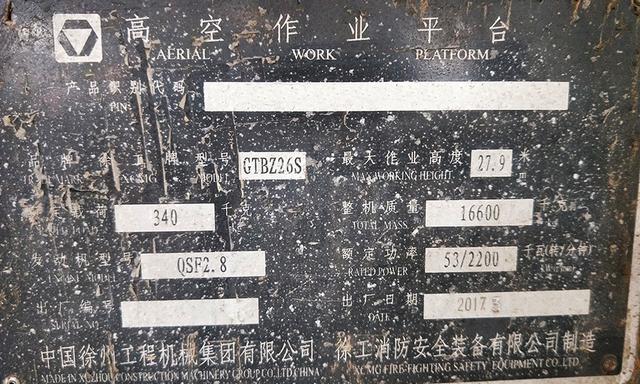 高空作业平台
AERIAL WORK PLATFORM
产品识别代码
PIN
品牌 徐工牌 型号 GTBZ26S 最大作业高度 27.9 米
XCMG MODEL MAX WORKING HEIGHT m
载荷 340 千克 整机质量 16600 千克
TOTAL MASS
发动机型号 QSF2.8 额定功率 53/2200 千瓦(转/分钟)
ENGINE MODEL RATED POWER
出厂编号 出厂日期 2017
SERIAL NO. DATE
中国徐州工程机械集团有限公司 徐工消防安全装备有限公司制造
MADE IN XUZHOU CONSTRUCTION MACHINERY GROUP CO.,LTD,CHINA XCMG FIRE-FIGHTING SAFETY EQUIPMENT CO.,LTD.